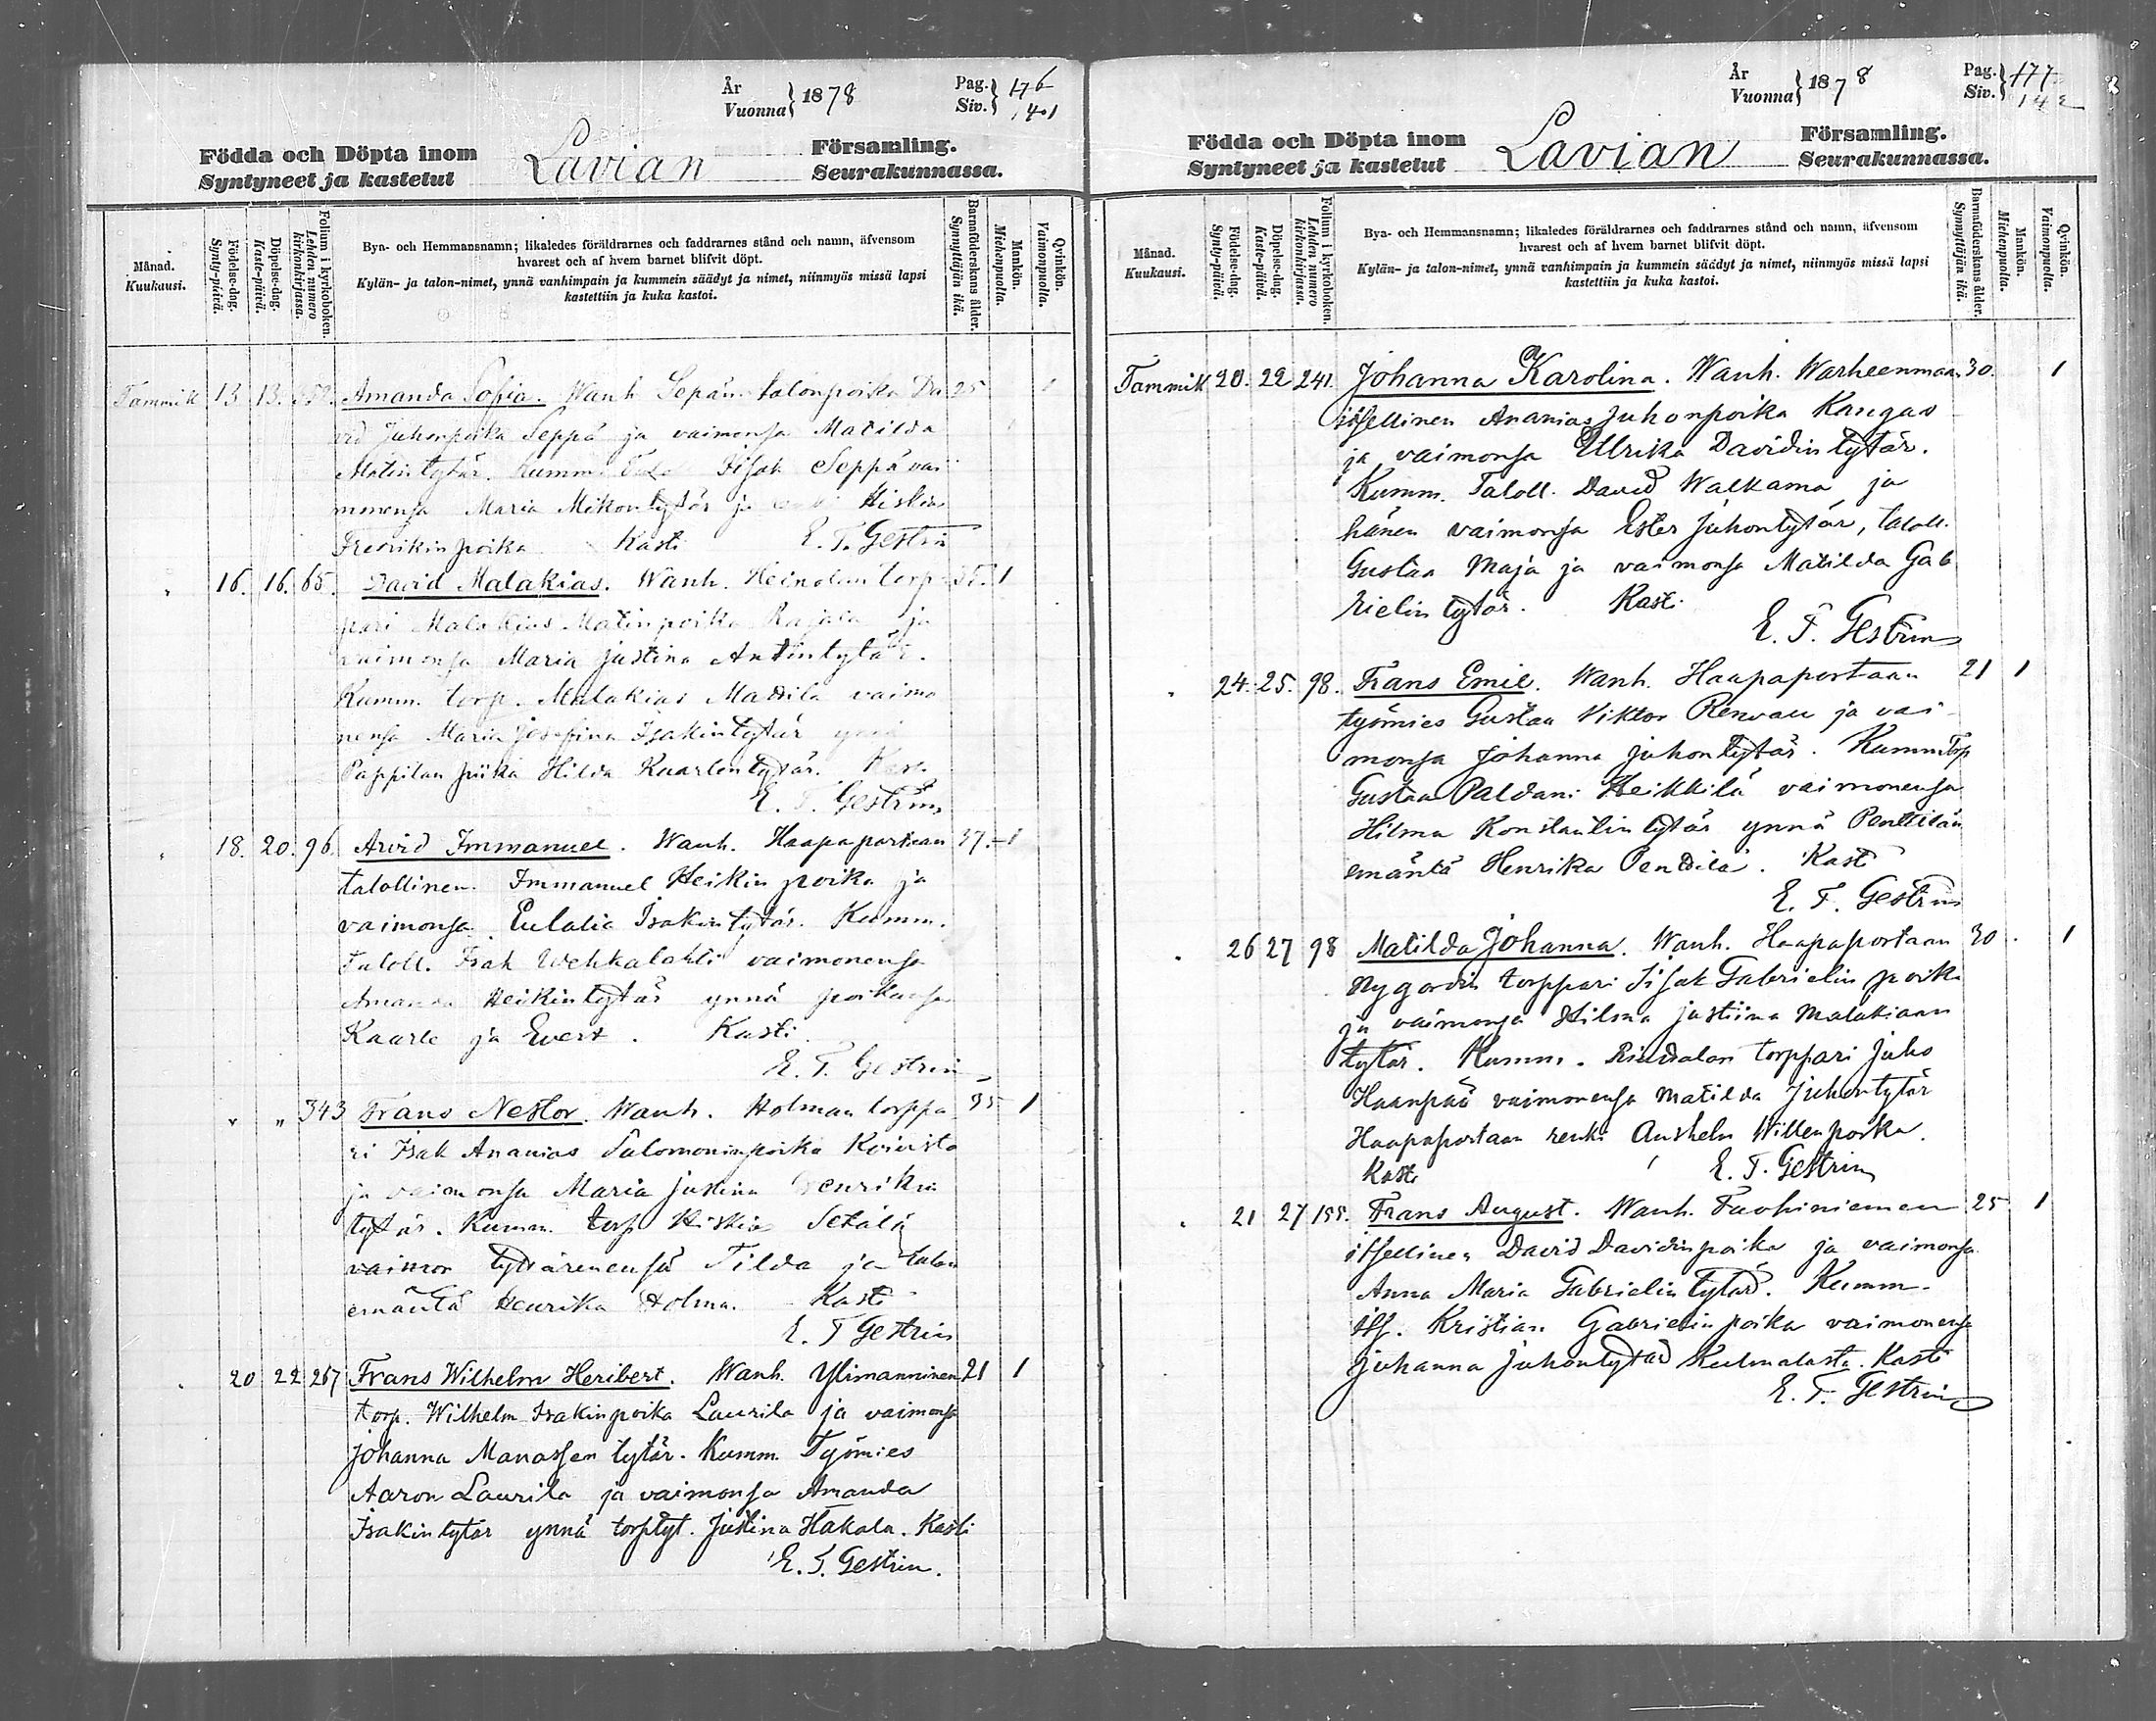 År
Vuonna } 1878
Pag.
Siv. } 176
141
Födda och Döpta inom
Syntyneet ja kastetut
Lavian
Församling.
Seurakunnassa.
Månad.
Kuukausi.
Födelse-dag.
Synty-päivä.
Döpelse-dag.
Kaste-päivä.
Folium i kyrkoboken.
Lehden numero
kirkonkirjassa.
Byn- och Hemmansnamn; likaledes föräldrarnes och faddrarnes stånd och namn, äfvensom
hvarest och af hvem barnet blifvit döpt.
Kylän- ja talon-nimet, ynnä vanhimpain ja kummein säädyt ja nimet, niinmyös missä lapsi
kastettiin ja kuka kastoi.
Barnaföderskans ålder.
Synnyttäjän ikä.
Mankön.
Miehenpuolia.
Qvinkön.
Vaimonpuolia.
Tammik 13. 13. Amanda Sofia. Wanh. Sepän talonpoika Da 25 1
vid Juhonpoika Seppä ja vaimonsa Matilda
Matintytär. Kumm. Iisak Seppä vai
monensa Maria Mikontytär ja Hiskias
Fredrikinpoika Kasti E. T. Gestrin
" 16. 16. 65. David Malakias. Wanh. Heinolan torp 1
pari Malakias Matinpoika Rajala ja
vaimonsa Maria Justina Antintytär.
Kumm. torp. Malakias Mattila vaimo
nensa Maria Josefina Isakintytär ynnä
Pappilan piika Hilda Kaarlentytär. Kasti
E. T. Gestrin
" 18. 20. 96. Arvid Immanuel. Wanh. Haapaportaan 37. 1
talollinen Immanuel Heikinpoika ja
vaimonsa Eulalia Isakintytär. Kumm.
Taloll. Isak Wehkalahti vaimonensa
Amanda Heikintytär ynnä poikansa
Kaarle ja Evert. Kasti
E. T. Gestrin
" " 343 Frans Nestor. Wanh. Holman torppa 35 1
ri Isak Ananias Salomoninpoika Koivisto
ja vaimonsa Maria Justina Henrikin
tytär. Kumm. torp Hiskia Setälä
vaimon tyttärenensä Tilda ja talon
emäntä Henrika Holma. Kasti
E. T Gestrin
" 20 22 267 Frans Wilhelm Heribert. Wanh. Ylimanninen 21 1
torp. Wilhelm Isakinpoika Laurila ja vaimonsa
Johanna Manassentytär. Kumm. Työmies
Aaron Laurila ja vaimonsa Amanda
Isakintytär ynnä torptyt. Justina Hakala. Kasti
E. T. Gestrin.
År
Vuonna } 1878
Pag.
Siv. } 177
142
Födda och Döpta inom
Syntyneet ja kastetut
Lavian
Församling.
Seurakunnassa.
Månad.
Kuukausi.
Födelse-dag.
Synty-päivä.
Döpelse-dag.
Kaste-päivä.
Folium i kyrkoboken.
Lehden numero
kirkonkirjassa.
Bya- och Hemmansnamn; likaledes föräldrarnes och faddrarnes stånd och namn, äfvensom
hvarest och af hvem barnet blifvit döpt.
Kylän- ja talon-nimet, ynnä vanhimpain ja kummein säädyt ja nimet, niinmyös missä lapsi
kastettiin ja kuka kastoi.
Barnaföderskans ålder.
Synnyttäjän ikä.
Mankön.
Miehenpuolia.
Qvinkön.
Vaimonpuolia.
Tammik 20. 22 241. Johanna Karolina. Wanh. Warheenmaan 30. 1
itsellinen Ananias Juhonpoika Kangas
ja vaimonsa Ullrika Davidintytär.
Kumm. Taloll. David Walkama ja
hänen vaimonsa Ester Juhontytär, taloll.
Gustaa Maja ja vaimonsa Matilda Gab
rielintytär. Kasti
E. T. Gestrin
" 24. 25. 98. Frans Emil. Wanh. Haapaportaan 21 1
työmies Gustaa Viktor Renvall ja vai
monsa Johanna Juhontytär. Kumm Torp
Gustaa Paldani Heikkilä vaimonensa
Hilma Konstantintytär ynnä Penttilän
emäntä Henrika Penttilä. Kasti
E. T. Gestrin
" 26 27 98 Matilda Johanna. Wanh. Haapaportaan 30. 1
Nygordin torppari Iisak Gabrielin poika
ja vaimonsa Hilma Justiina Malakiaan
tytär. Kumm. torppari Juho
Haanpää vaimonensa Matilda Juhontytär
Haapaportaan renki Anshelm Willenpoika.
Kasti E. T. Gestrin
" 21 27 155. Frans August. Wanh. Puohiniemen 25 1
itsellinen David Davidinpoika ja vaimonsa
Anna Maria Gabrielintytär. Kumm.
its. Kristian Gabrielinpoika vaimonensa
Johanna Juhontytär Kulmalasta. Kasti
E. T. Gestrin